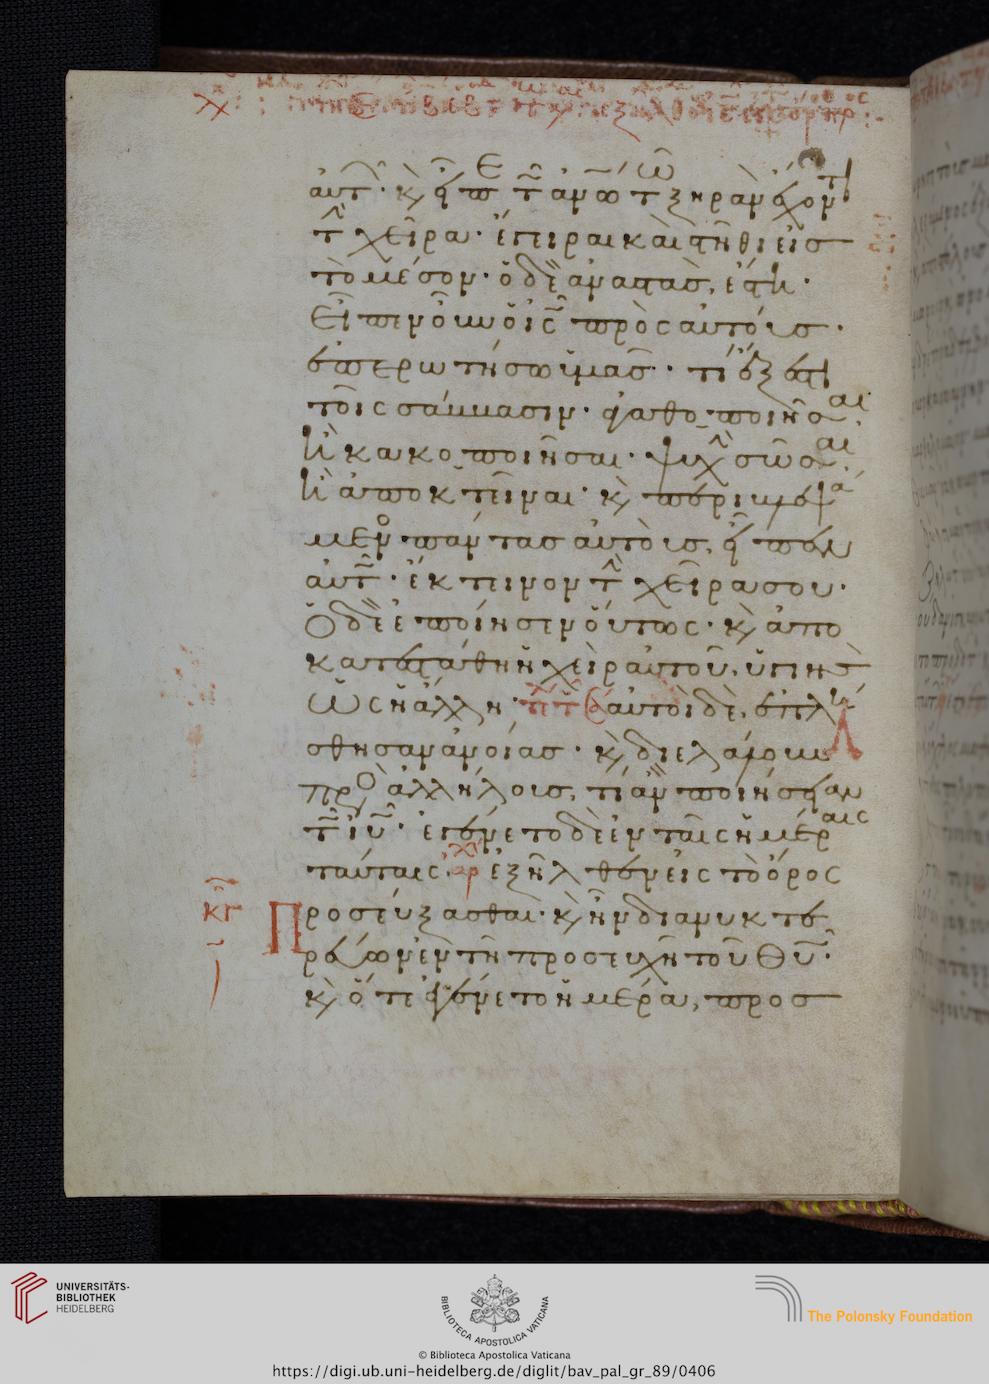 αὐτ. κ εἶπε τῷ ἀνω τ ξηρὰν ἔχοντι
τ χεῖρα· ἔγειραι καὶ στῆθι εἰς
τὸ μέσον· ὁ δὲ ἀναστὰς, ἔστη·
εἶπεν οὖν ὁ ις πρὸς αὐτούς·
ἐπερωτήσω ὑμᾶς· τί ἔξεστι
τοῖς σάββασιν· ἀγαθοποιῆσαι
ἢ κακοποιῆσαι· ψυχὴν σῶσαι
ἢ ἀποκτεῖναι· κ περιβλεψά
μενος πάντας αὐτοὺς, εἶπεν
αὐτῷ· ἔκτεινον τ χεῖρα σου·
ὁ δὲ ἐποίησεν οὕτως· κ ἀπο
κατεστάθη ἡ χεὶρ αὐτοῦ, ὑγιὴς
ὡς ἡ ἄλλη· αὐτοὶ δὲ, ἐπλή
σθησαν ἀνοίας· κ διελάλουν
πρὸς ἀλλήλους, τί ἂν ποιήσειαν
τῷ ιυ· ἐγένετο δὲ ἐν ταῖς ἡμέραις
ταύταις· ἐξῆλθεν εἰς τὸ ὄρος
κγ Προσεύξασθαι· κ ἦν διανυκτε
ρεύων ἐν τῇ προσευχῇ τοῦ θυ·
κ ὅτε ἐγένετο ἡμέρα, προσ
UNIVERSITÄTS-
BIBLIOTHEK
HEIDELBERG
BIBLIOTECA APOSTOLICA VATICANA
The Polonsky Foundation
© Biblioteca Apostolica Vaticana
https://digi.ub.uni-heidelberg.de/diglit/bav_pal_gr_89/0406